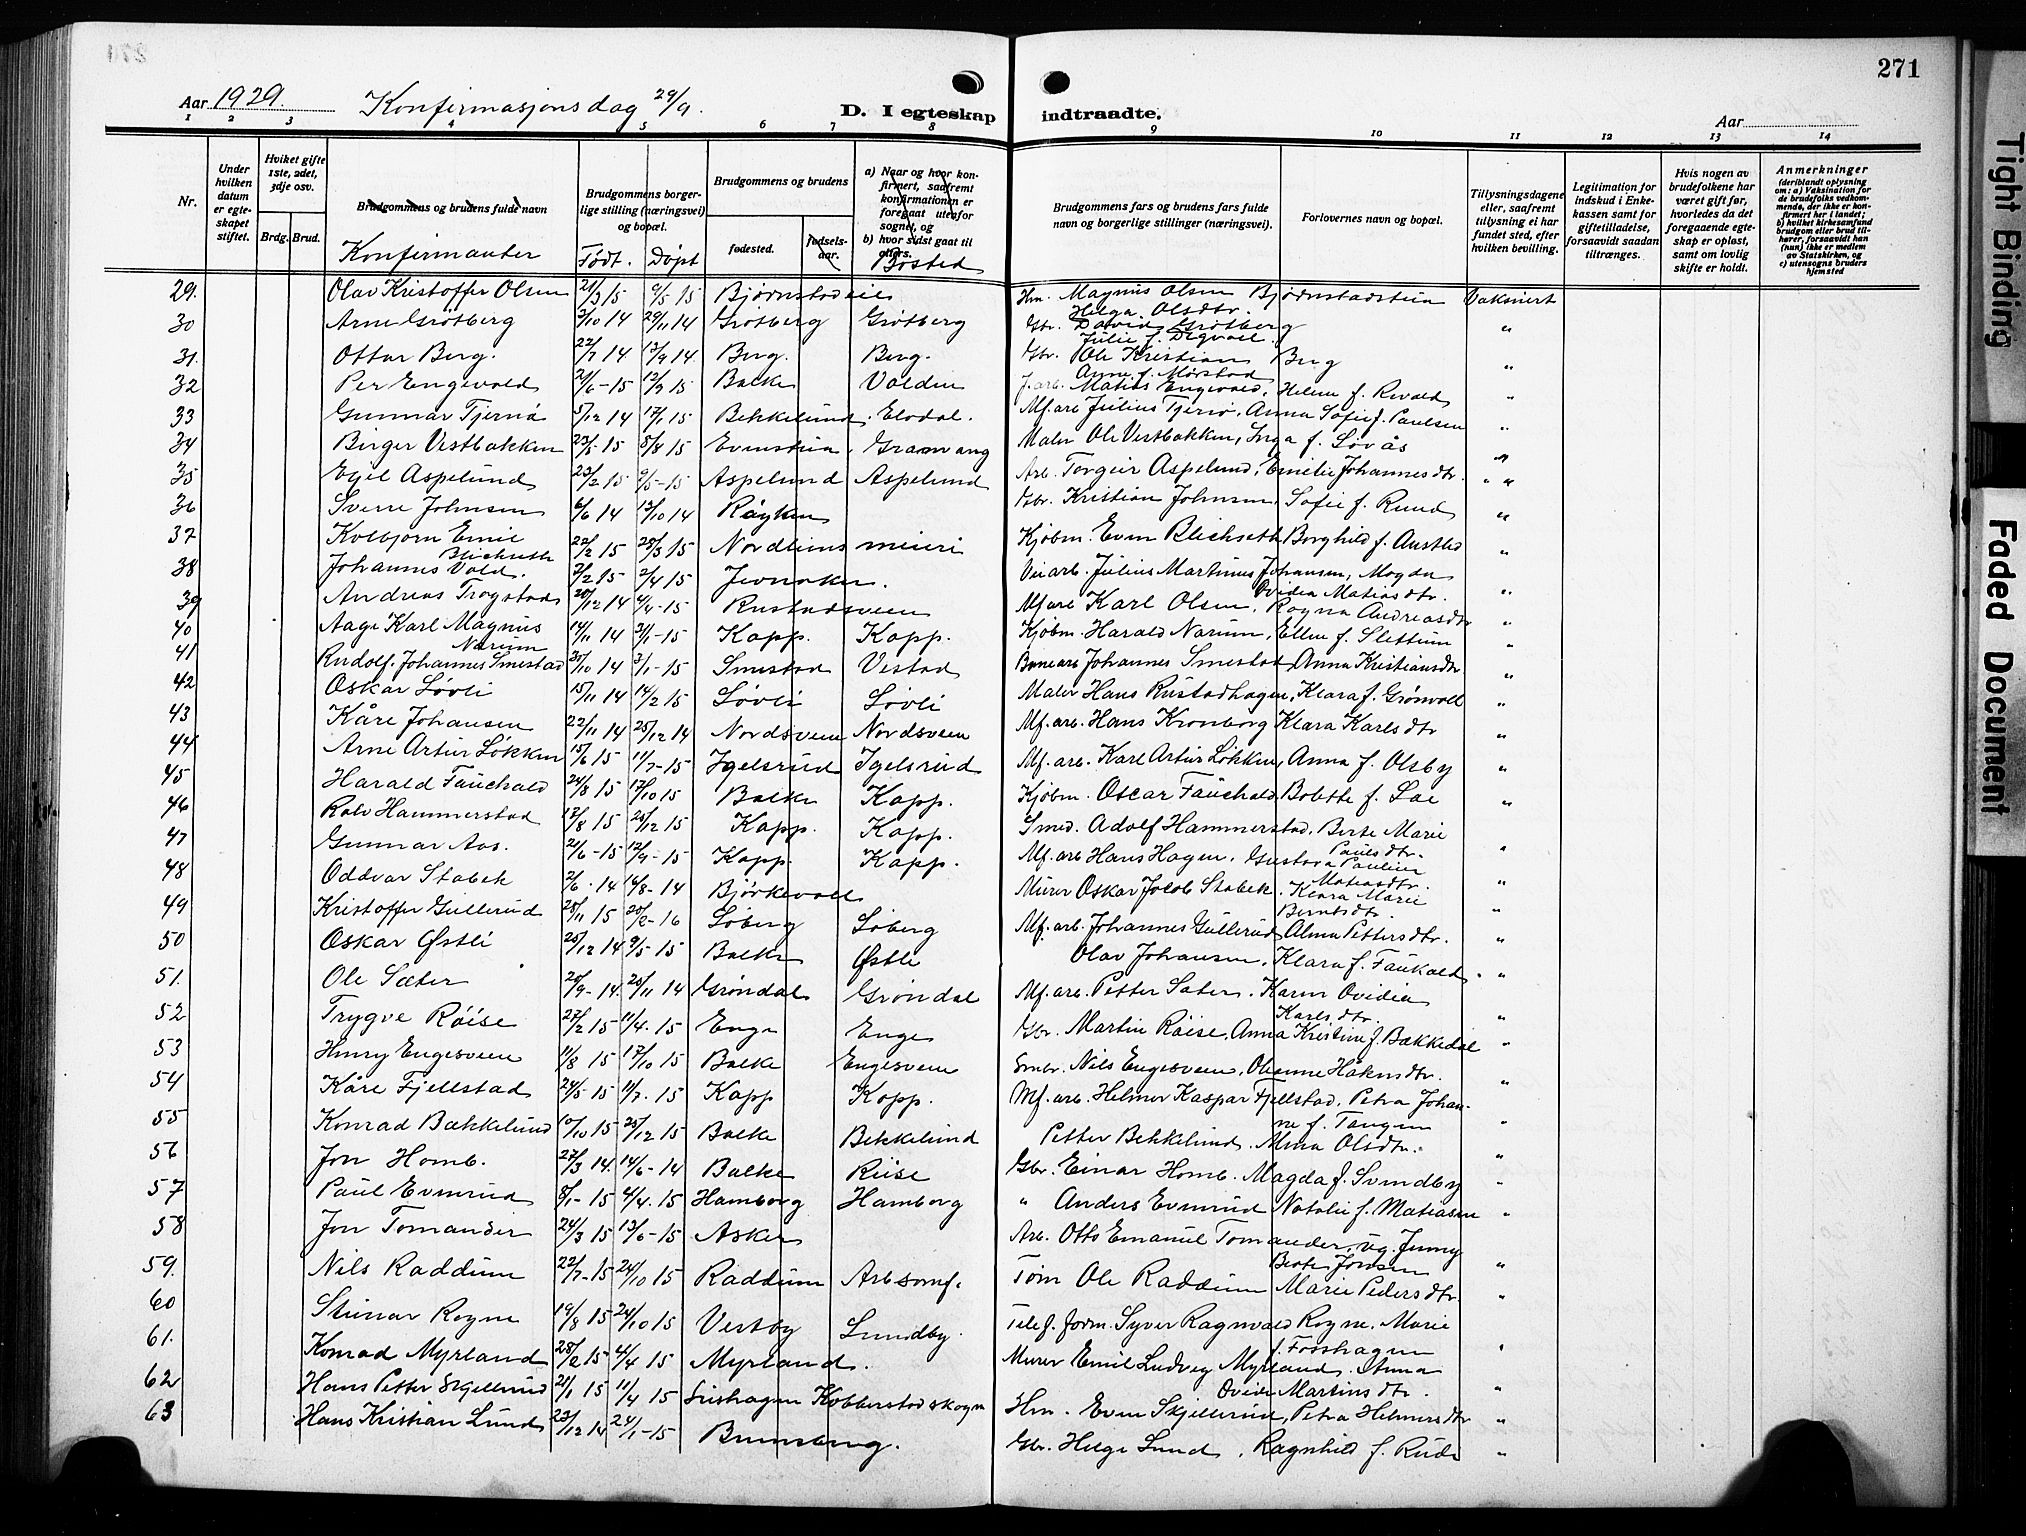 271
Aar 1929. Konfirmasjonsdag 29/9. D. I egteskap indtraadte. Aar
1 2 3 4 5 6 7 8 9 10 11 12 13 14
Nr.
Under hvilken datum er egteskapet stiftet.
Hvilket gifte 1ste, 2det, 3dje osv.
Brdg. Brud.
Brudgommens og brudens fulde navn
Konfirmanter
Brudgommens borgerlige stilling (næringsvei) og bopæl.
Født. Døpt
Brudgommens og brudens
fødested. fødselsaar.
a) Naar og hvor konfirmert, saafremt konfirmationen er foregaat utenfor sognet, og
b) hvor sidst gaat til alters.
Bosted
Brudgommens fars og brudens fars fulde navn og borgerlige stillinger (næringsvei).
Forlovernes navn og bopæl.
Tillysningsdagene eller, saafremt tillysning ei har fundet sted, efter hvilken bevilling.
Legitimation for indskud i Enkekassen samt for giftetilladelse, forsaavidt saadan tiltrænges.
Hvis nogen av brudefolkene har været gift før, hvorledes da det foregaaende egteskap er opløst, samt om lovlig skifte er holdt.
Anmerkninger
(deriblandt oplysning om: a) Vaksination for de brudefolks vedkommende, der ikke er konfirmert her i landet; b) hvilket kirkesamfund brudgom eller brud tilhører, forsaavidt han (hun) ikke er medlem av Statskirken, og c) utensogns bruders hjemsted
29. Olav Kristoffer Olsen 21/3 15 9/5 15 Bjørnstadeie Hm. Magnus Olsen Bjørnstadsteia Vaksinert
Helga Olsdtr.
30 Arne Grøtberg 3/10 14 29/11 14 Grøtberg Grøtberg Gbr. David Grøtberg "
Julie f. Degvoll.
31. Ottar Berg. 22/7 14 13/9 14 Berg. Berg. Gbr. Ole Kristian Berg "
Anne f. Mørstad
32 Per Engevold 21/6-15 12/9 15 Balke Voldin J.arb. Matias Engevold, Helene f. Revold "
33 Gunnar Tjernø 5/12 14 17/1 15 Bekkelund. Elvdal. Mf. arb Julius Tjernø, Anna Sofie f. Paulsen "
34 Birger Vestbakken 23/5 15 8/8 15 Evensteia. Granvang Maler Ole Vestbakken, Inga f. Løvås "
35 Egil Aspelund 23/2 15 9/5-15 Aspelund Aspelund Arb. Torgeir Aspelund, Emelie Johannesdtr. "
36 Sverre Johnsen 6/6 14 13/10 14 Røyken Gbr. Kristian Johnsen, Sofie f. Ruud "
37 Kolbjørn Emil Blichseth 22/2 15 28/3 15 Nordliens meieri Kjøbm. Even Blichseth Borghild f. Austlid "
38 Johannes Vold. 3/2 15 2/4 15 Jevnaker. Veiarb. Julius Martinus Johansen, Magda "
Ovidia Matiasdtr.
39 Andreas Trogstad 20/12 14 4/4-15 Rustadsveen Mf arb Karl Olsen. Ragna Andreasdtr "
40 Aage Karl Magnus Narum 14/11 14 31/1-15 Kapp. Kapp. Kjøbm. Harald Narum, Ellen f. Slettum "
41 Rudolf Johannes Smestad 31/10 14 3/1-15 Smestad Vestad Banearb Johannes Smestad Anna Kristiansdtr. "
42 Oskar Løvli 15/11 14 14/2 15 Løvli Løvli Maler Hans Rustadhagen, Klara f. Grønvoll "
43 Kåre Johansen 22/11 14 25/12 14 Nordsveen Nordsveen Mf. arb. Hans Kronborg Klara Karlsdtr "
44 Arne Artur Løkken 15/6 15 11/7-15 Igelsrud Igelsrud Mf. arb. Karl Artur Løkken, Anna f. Olsby "
45 Harald Fauchald 24/8 15 17/10 15 Balke Kapp. Kjøbm. Oscar Fauchald, Bolette f. Loe "
46 Rolv Hammerstad 17/8 15 25/12 15 Kapp. Kapp. Smed. Adolf Hammerstad, Berte Marie
Paulsdtr. "
47 Gunnar Aas. 21/6-15 12/9-15 Kapp Kapp. Mf. arb Hans Hagen. Gustava Pauline
Matiasdtr. "
48 Oddvar Stabek 2/6.14 16/8-14 Bjørkevoll Murer Oskar Jacob Stabek. Klara Marie
Berntsdtr. "
49 Kristoffer Gullerud 28/11 15 20/2-16 Søberg Søberg Mf. arb. Johannes Gullerud Alma Pettersdtr. "
50 Oskar Østli 25/12 14 9/5 15 Balke Østli Olav Johansen, Klara f. Faukald. "
51. Ole Sæter 20/9-14. 26/11 14 Grøndal Grøndal Mf. arb. Petter Sæter. Karen Ovidia
Karlsdtr. "
52 Trygve Røise 27/2 15 11/4. 15 Enge Enge Gbr. Martin Røise. Anna Kristine f. Bækkedal "
53 Henry Engesveen 11/8 15 17/10 15 Balke Engesveen Smbr. Nils Engesveen, Oleanne Håkensdtr. "
54 Kåre Fjellstad 24/5 15 11/7. 15 Kapp Kapp. Mf. arb. Helmer Kaspar Fjellstad. Petra Johan-
ne f. Tangen "
55 Konrad Bækkelund 10/10 15 25/12 15 Balke Bekkelund Petter Bekkelund. Alma Olsdtr. "
56 Jon Homb. 27/3 14. 14/6-14 Balke Riise Gbr. Einar Homb. Magda f. Svendby "
57 Paul Evenrud 8/1-15 4/4. 15 Hamborg Hamborg " Anders Evenrud Natalie f. Matiasen "
58 Jon Tomander 24/3 15 13/6-15 Asker Arb. Otto Emanuel Tomander, ug. Jenny
Berte Jonsen "
59. Nils Raddum 22/7-15 24/10 15 Raddum Arbsamf. Tøm Ole Raddum Marie Pedersdtr. "
60 Steinar Rogne 19/8 15 24/10 15 Vestby Lundby. Telef. form. Syver Ragnvald Rogne. Marie
f. Fosshagen "
61. Konrad Myrland 28/2 15 4/4 15 Myrland. Murer Emil Ludvig Myrland. Anna
Ovidie Martinsdtr. "
62 Hans Petter Skjellerud 21/1 15 11/4 15 Lushagen Kobberstadskogen Hm. Even Skjellerud, Petra Helmersdtr "
63 Hans Kristian Lund 23/12 14 24/1-15 Brunsberg. Gbr. Helge Lund, Ragnhild f. Rude "
Tight Binding
Faded Document